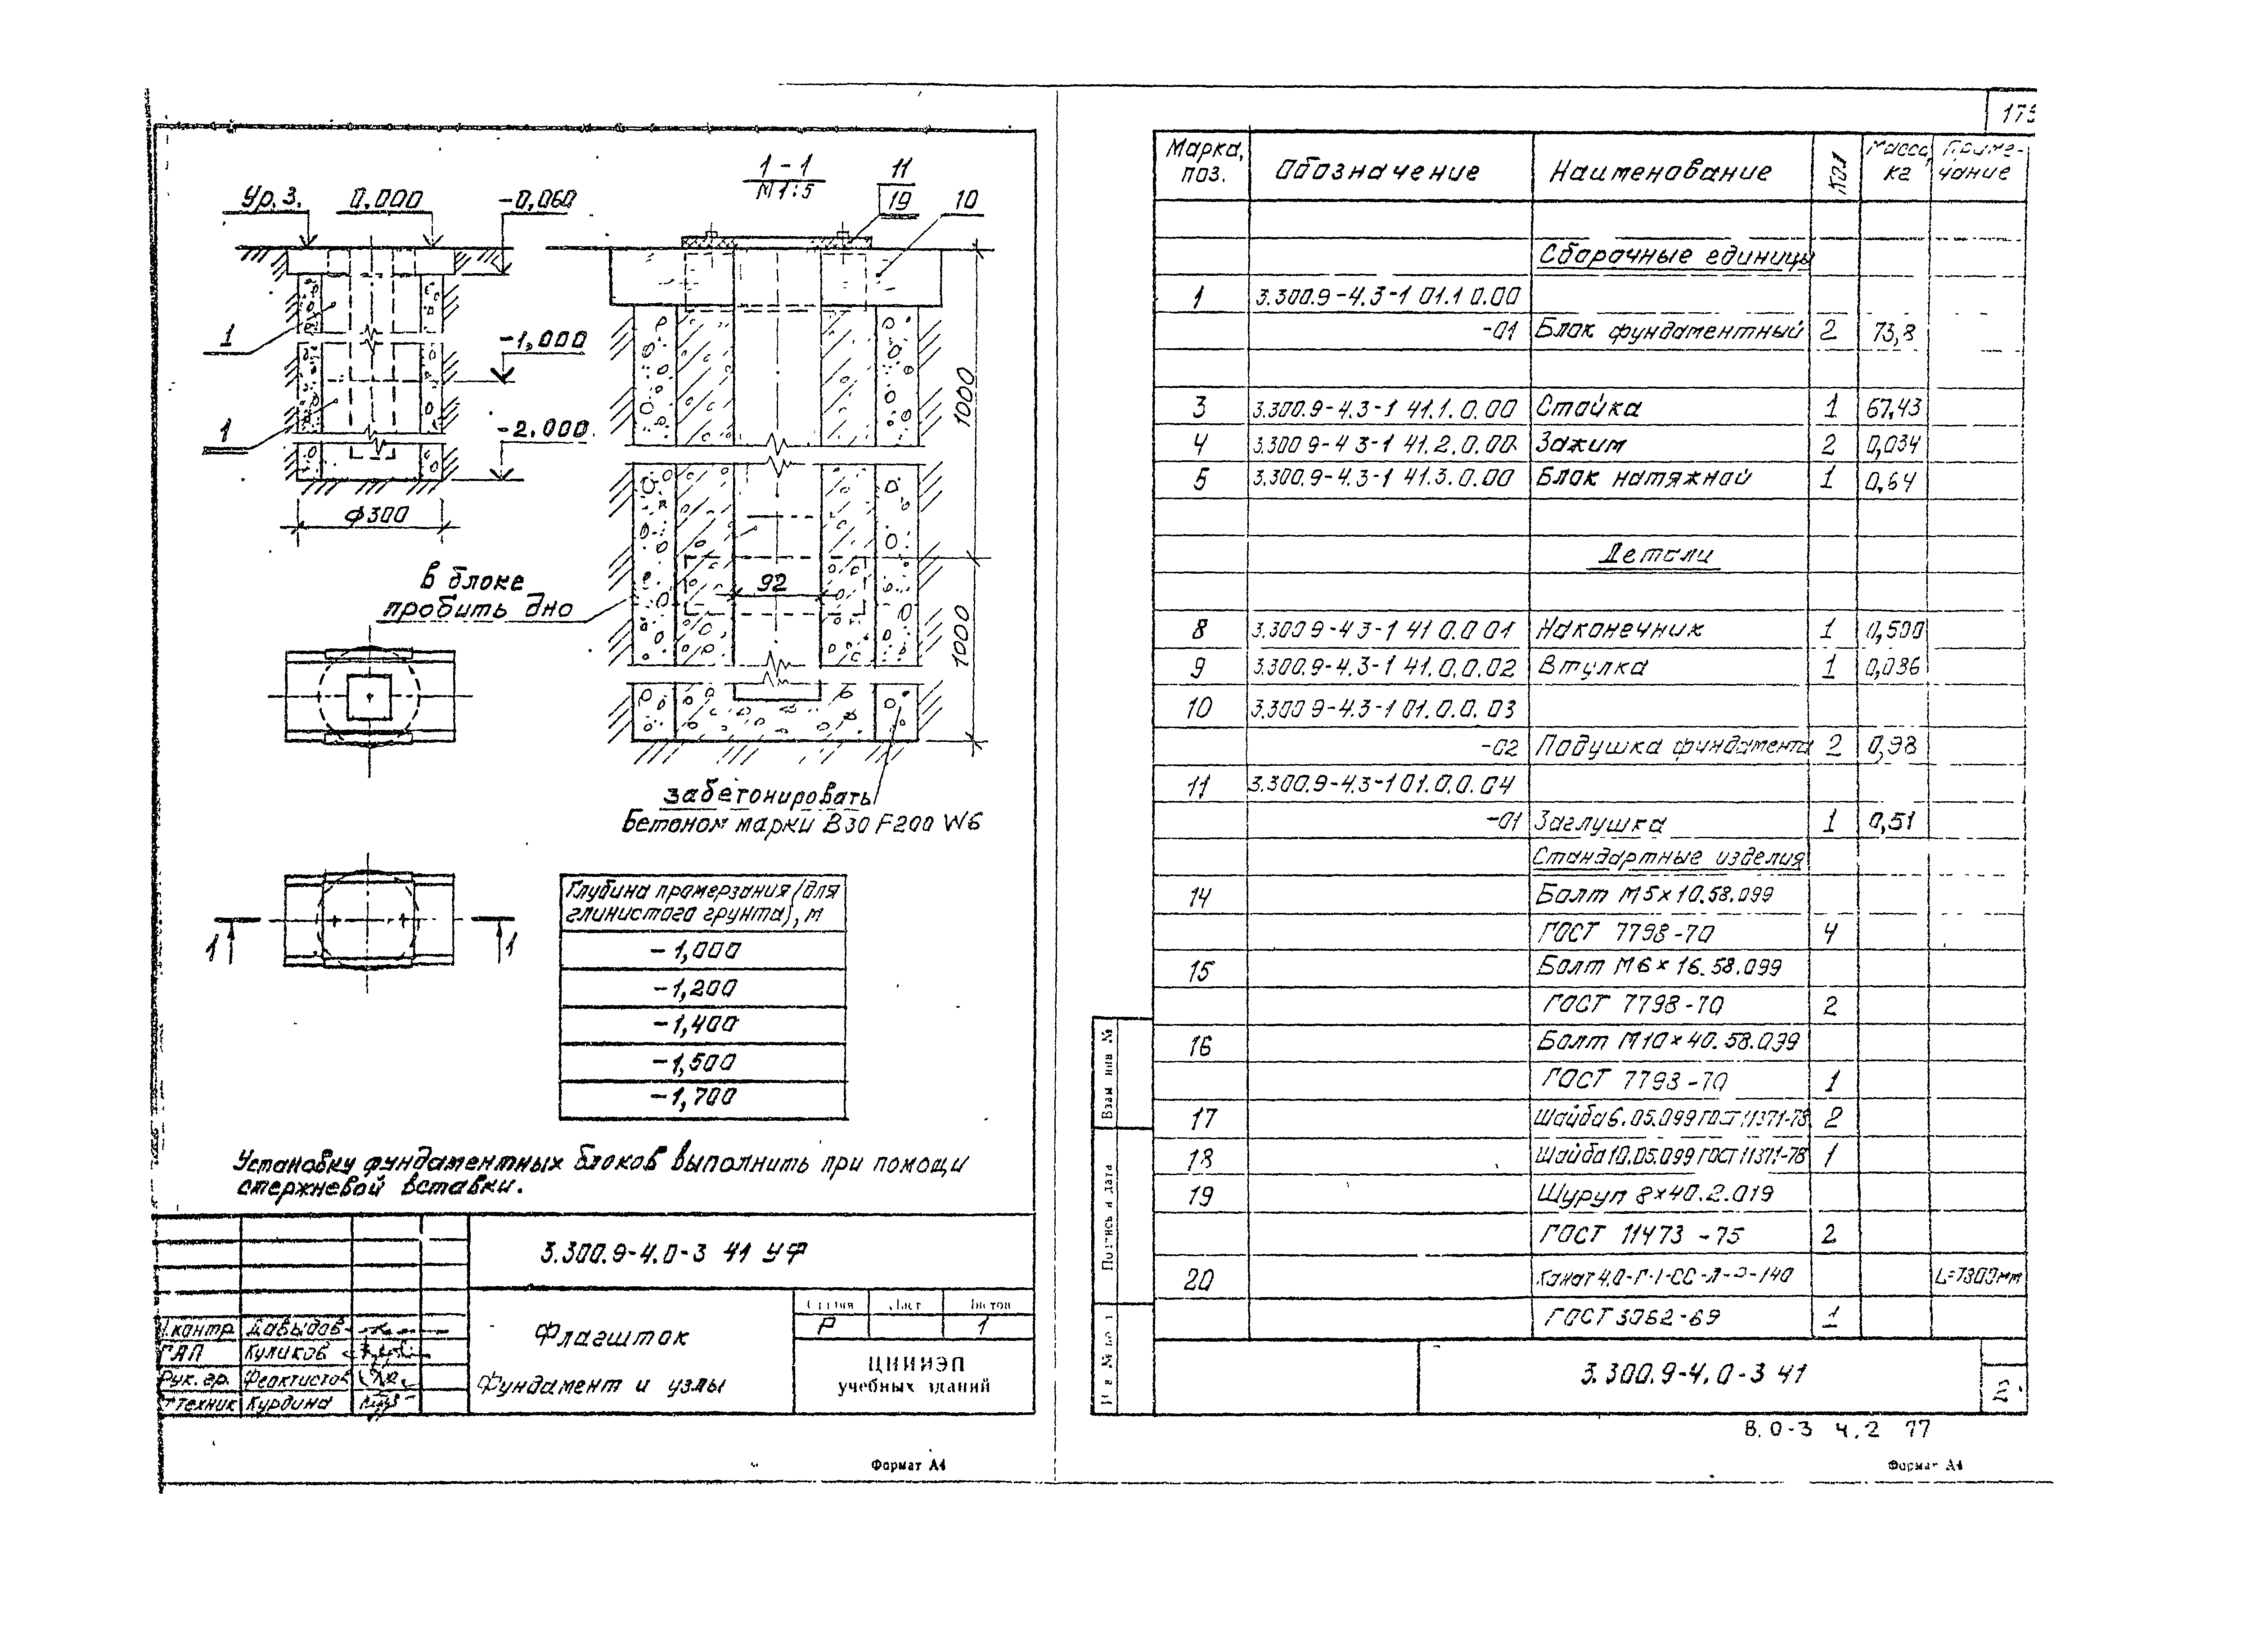 1-1
М 1:5
11
19
10
Ур.З.
0.000
-0,060
1
-1,000
1
-2.000
ф300
1000
1000
92
в блоке
пробить дно
забетонировать
Бетоном марки В30 F200 W6
1
1
Глубина промерзания (для
глинистого грунта), м
-1,000
-1,200
-1,400
-1,500
-1,700
Установку фундаментных блоков выполнить при помощи
стержневой вставки.
3.300.9-4.0-3 41 УФ
Флагшток
Фундамент и узлы
Стадия Лист Листов
Р 1
ЦНИИЭП
учебных зданий
Н.контр Давыдов
ГАП Куликов
Рук. гр. Феоктистов
Ст техник Курдина
Формат А4
173
Марка, поз. Обозначение Наименование Кол Масса, кг Примечание
Сборочные единицы
1 3.300.9-4.3-1 01.1 0.00
-01 Блок фундаментный 2 73,8
3 3.300.9-4.3-1 41.1.0.00 Стойка 1 67,43
4 3.300 9-4 3-1 41.2.0.00 Зажим 2 0,034
5 3.300.9-4.3-1 41.3.0.00 Блок натяжной 1 0,64
Детали
8 3.300 9-4 3-1 41 0.0 01 Наконечник 1 0,500
9 3.300.9-4.3-1 41.0.0.02 Втулка 1 0,086
10 3.300 9-4.3-1 01.0.0.03
-02 Подушка фундамента 2 0,98
11 3.300.9-4.3-1 01.0.0.04
-01 Заглушка 1 0,51
Стандартные изделия
14 Болт М5×10.58.099
ГОСТ 7798-70 4
15 Болт М6×16.58.099
ГОСТ 7798-70 2
16 Болт М10×40.58.099
ГОСТ 7798-70 1
17 Шайба 6.05.099 ГОСТ 11371-78 2
18 Шайба 10.05.099 ГОСТ 11371-78 1
19 Шуруп 8×40.2.019
ГОСТ 11473-75 2
20 Канат 4.0-Г-1-СС-Л-О-140 L=7300мм
ГОСТ 3062-69 1
Взам инв №
Подпись и дата
3.300.9-4.0-3 41
2
В.0-3 ч.2 77
Формат А4